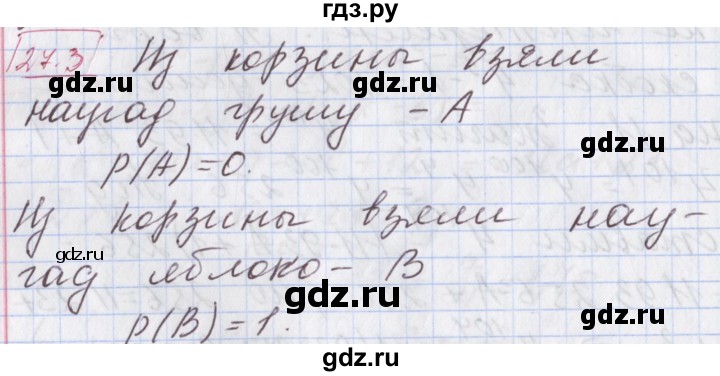 гдз.ру
27.3 Из корзины взяли
наугад грушу – А
p(A)=0.
Из корзины взяли нау-
гад яблоко – В
p(B)=1.
gdz.ru
gdz.ru
gdz.ru
gdz.ru
gdz.ru
gdz.ru